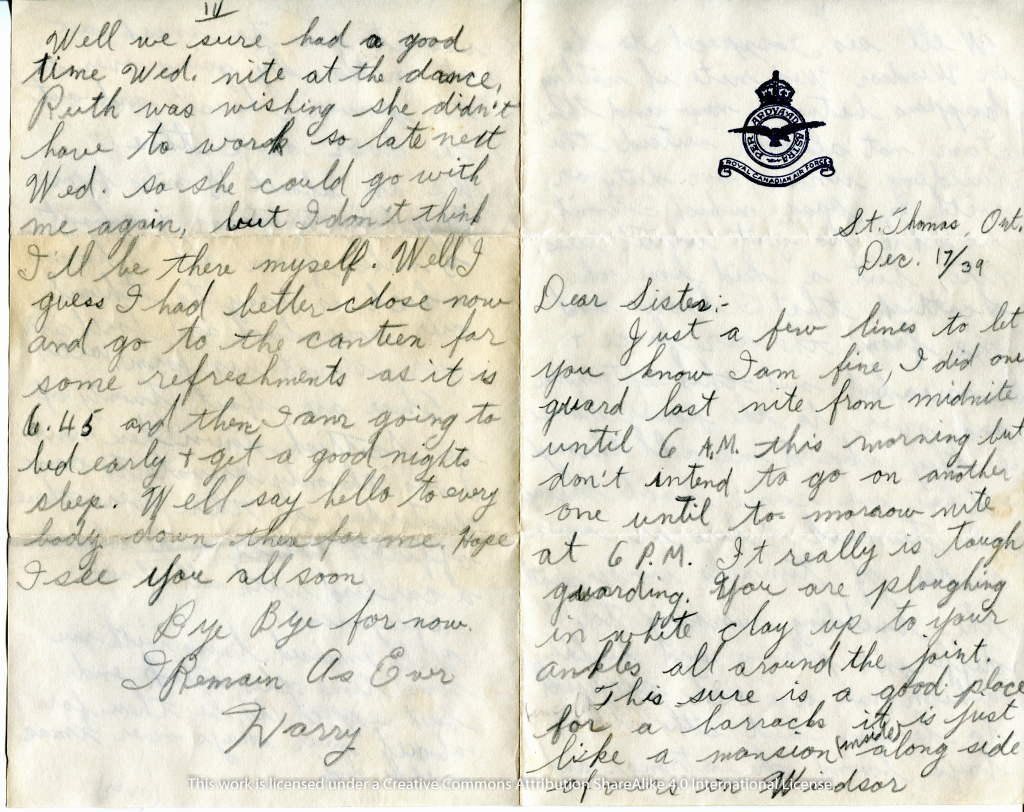 IV
Well we sure had a good
time Wed. nite at the dance,
Ruth was wishing she didn't
have to work so late next
Wed. so she could go with
me again, but I don't think
I'll be there myself. Well I
guess I had better close now
and go to the canteen for
some refreshments as it is
6.45 and then I am going to
bed early + get a good nights
sleep. Well say hello to every
body down there for me. Hope
I see you all soon
Bye Bye for now.
I Remain As Ever
Harry
PER ARDUA AD ASTRA
ROYAL CANADIAN AIR FORCE
St. Thomas, Ont.
Dec. 17/39
Dear Sister:-
Just a few lines to let
you know I am fine, I did one
guard last nite from midnite
until 6 A.M. this morning but
don't intend to go on another
one until to-morrow nite
at 6 P.M. It really is tough
guarding. You are ploughing
in white clay up to your
ankles all around the joint.
This sure is a good place
for a barracks it is just
like a mansion (inside) along side
of ours in Windsor
This work is licensed under a Creative Commons Attribution ShareAlike 4.0 International License.